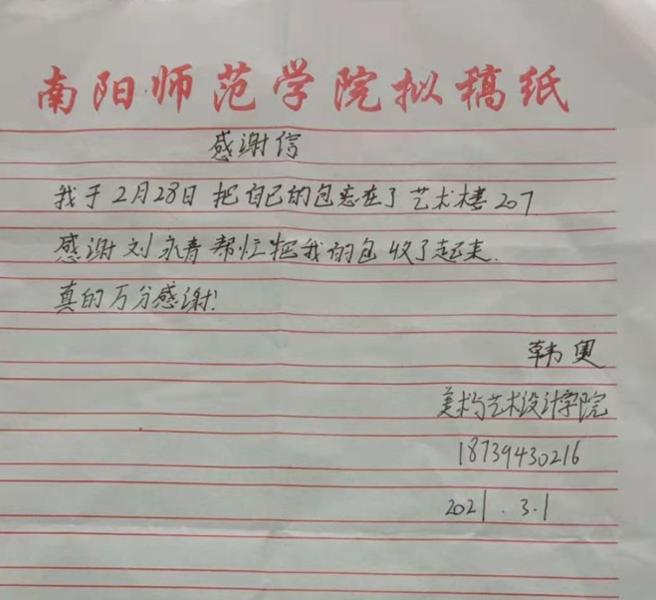 南阳师范学院拟稿纸
感谢信
我于2月28日把自己的包忘在了艺术楼207
感谢刘永青帮忙把我的包收了起来.
真的万分感谢!
韩奥
美术与艺术设计学院
18739430216
2021.3.1